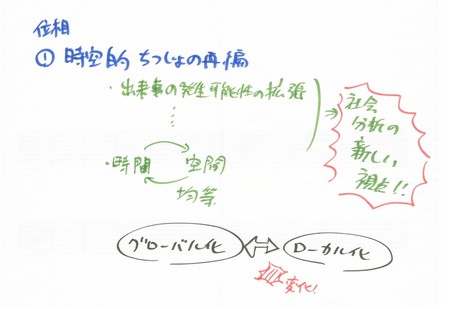 位相
① 時空的 ちつじょの再編
・出来事の発生可能性の拡張
⋮
・時間 空間
均等
社会
分析の
新しい
視点!!
グローバル化 ⇔ ローカル化
変化!